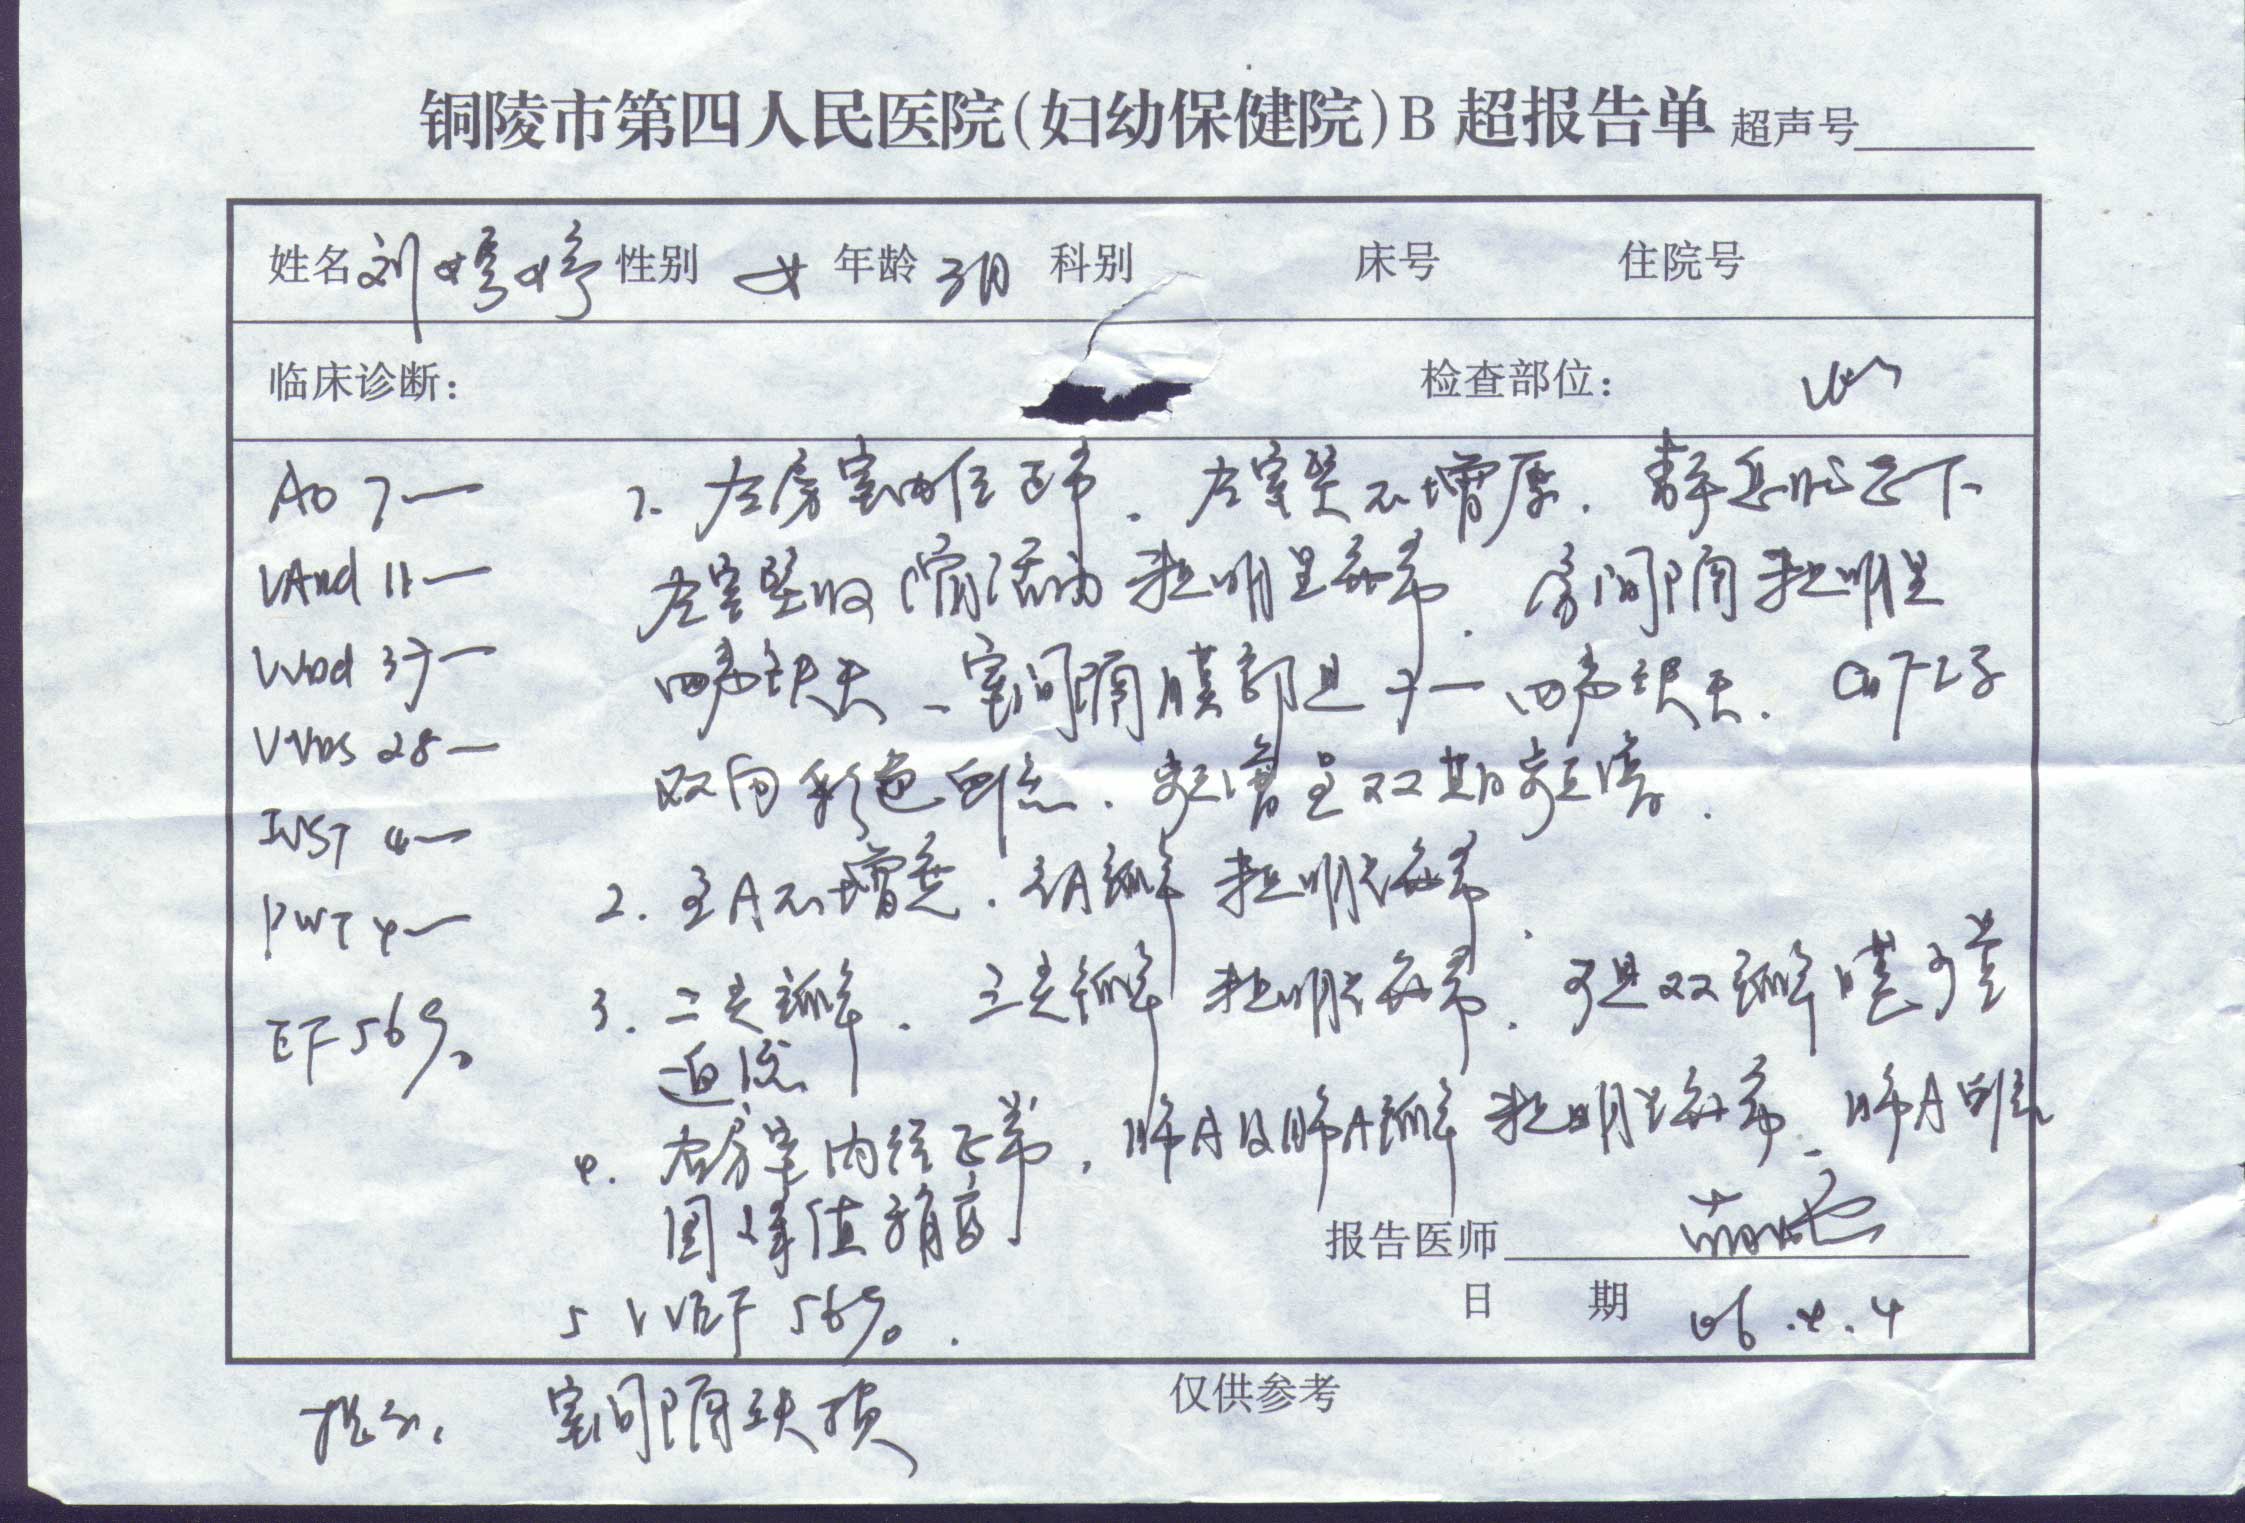 铜陵市第四人民医院(妇幼保健院)B 超报告单 超声号
姓名 刘 婷 性别 女 年龄 3月 科别 床号 住院号
临床诊断: 检查部位:
Ao 7一 1、左房室内径正常.左室壁不增厚.静息状态下、
LAnd 11一 左室壁收缩活动未见明显异常.房间隔未见明显
LVDd 37一 回声缺失、室间隔膜部见 7一 回声缺失.CDFI示
LVDS 28一 双向彩色血流.频谱呈双期频谱.
IVST 4一
2.主A不增宽.主A瓣未见明显异常.
PWT 4一
3.二尖瓣.三尖瓣未见明显异常.可见双瓣
EF 56%
返流
4.右房室内径正常,肺A及肺A瓣未见明显异常.肺A血流
图峰值稍高
报告医师
日 期 06.4.4
5 LVEF 56%.
仅供参考
提示: 室间隔缺损